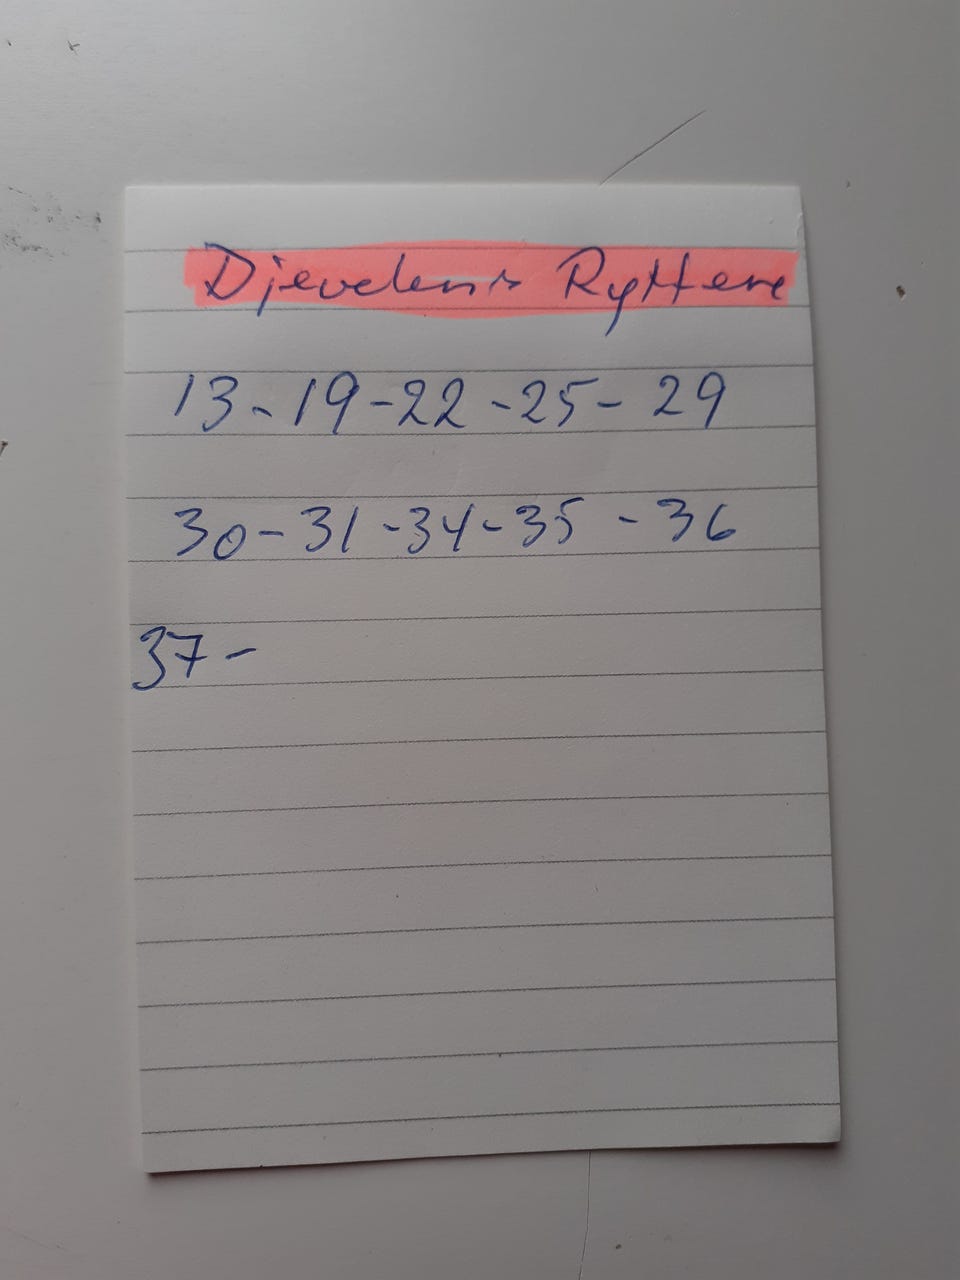 Djevelens Ryttere
13 - 19 - 22 - 25 - 29
30 - 31 - 34 - 35 - 36
37 -